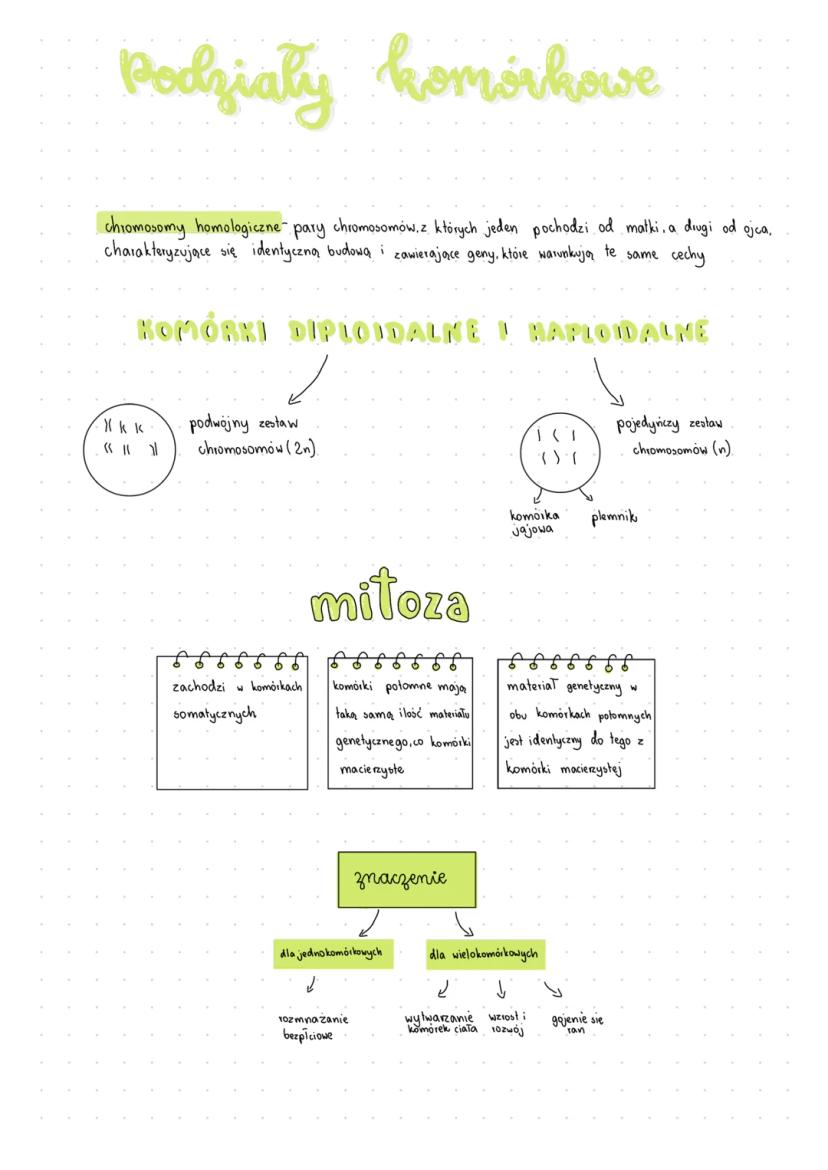 Podziały komórkowe
chromosomy homologiczne - pary chromosomów, z których jeden pochodzi od matki, a drugi od ojca,
charakteryzujące się identyczną budową i zawierające geny, które warunkują te same cechy
KOMÓRKI DIPLOIDALNE I HAPLOIDALNE
podwójny zestaw
chromosomów (2n)
pojedyńczy zestaw
chromosomów (n)
komórka
jajowa
plemnik
mitoza
zachodzi w komórkach
somatycznych
komórki potomne mają
taką samą ilość materiału
genetycznego, co komórki
macierzyste
materiał genetyczny w
obu komórkach potomnych
jest identyczny do tego z
komórki macierzystej
znaczenie
dla jednokomórkowych
dla wielokomórkowych
rozmnażanie
bezpłciowe
wytwarzanie
komórek ciała
wzrost i
rozwój
gojenie się
ran